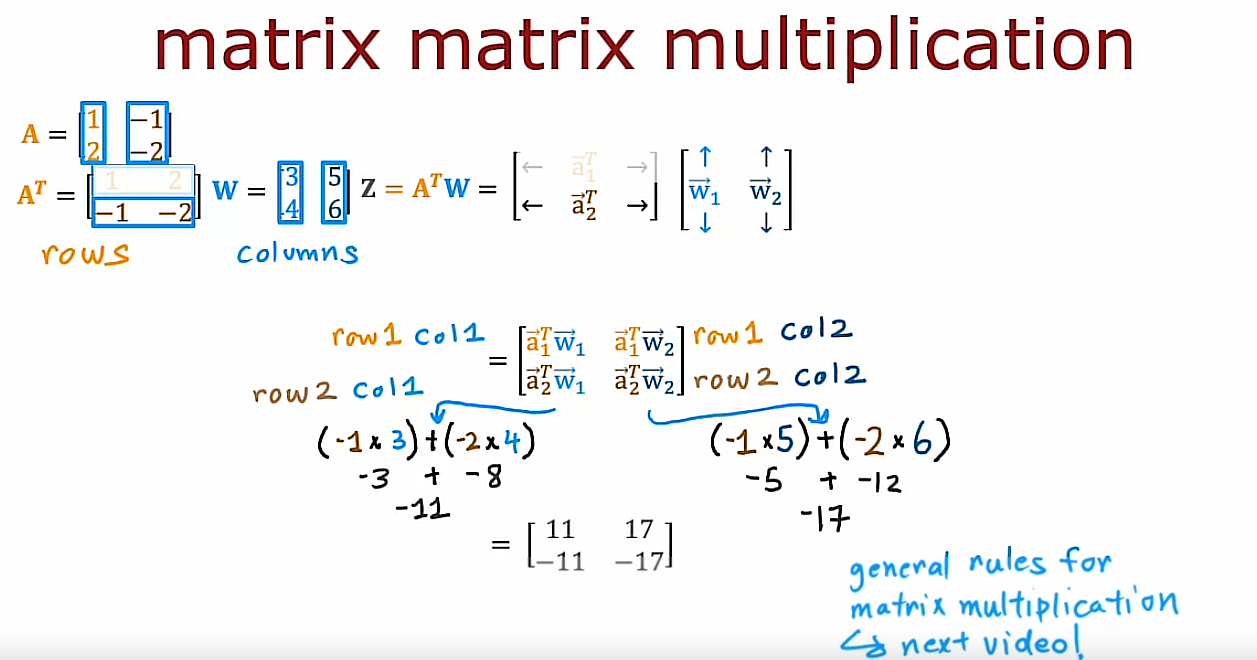 matrix matrix multiplication
A = [1 -1
2 -2]
Aᵀ = [1 2
-1 -2] W = [3 5
4 6] Z = AᵀW = [← a⃗₁ᵀ →
← a⃗₂ᵀ →] [↑ ↑
w⃗₁ w⃗₂
↓ ↓]
rows columns
row1 col1 = [a⃗₁ᵀw⃗₁ a⃗₁ᵀw⃗₂ row1 col2
row2 col1 a⃗₂ᵀw⃗₁ a⃗₂ᵀw⃗₂] row2 col2
(-1 x 3)+(-2 x 4) (-1 x 5)+(-2 x 6)
-3 + -8 -5 + -12
-11 -17
= [11 17
-11 -17]
general rules for
matrix multiplication
↳ next video!